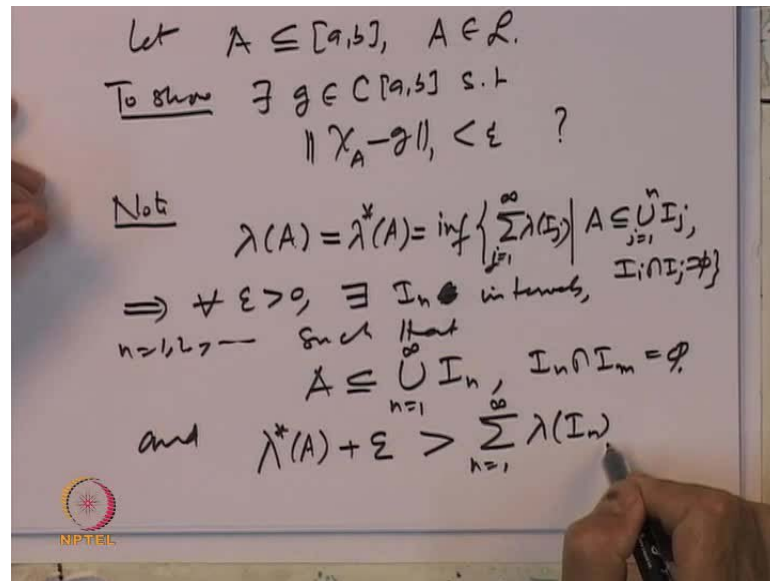 Let A ⊆ [a,b], A ∈ L.
To show ∃ g ∈ C[a,b] s.t
‖ χ_A − g ‖₁ < ε ?
Note
λ(A) = λ*(A) = inf { ∑_{j=1}^{∞} λ(I_j) | A ⊆ ⋃_{j=1}^{n} I_j,
I_i ∩ I_j = φ }
⟹ ∀ ε > 0, ∃ I_n intervals,
n=1,2,--- such that
A ⊆ ⋃_{n=1}^{∞} I_n, I_n ∩ I_m = φ.
and λ*(A) + ε > ∑_{n=1}^{∞} λ(I_n)
NPTEL